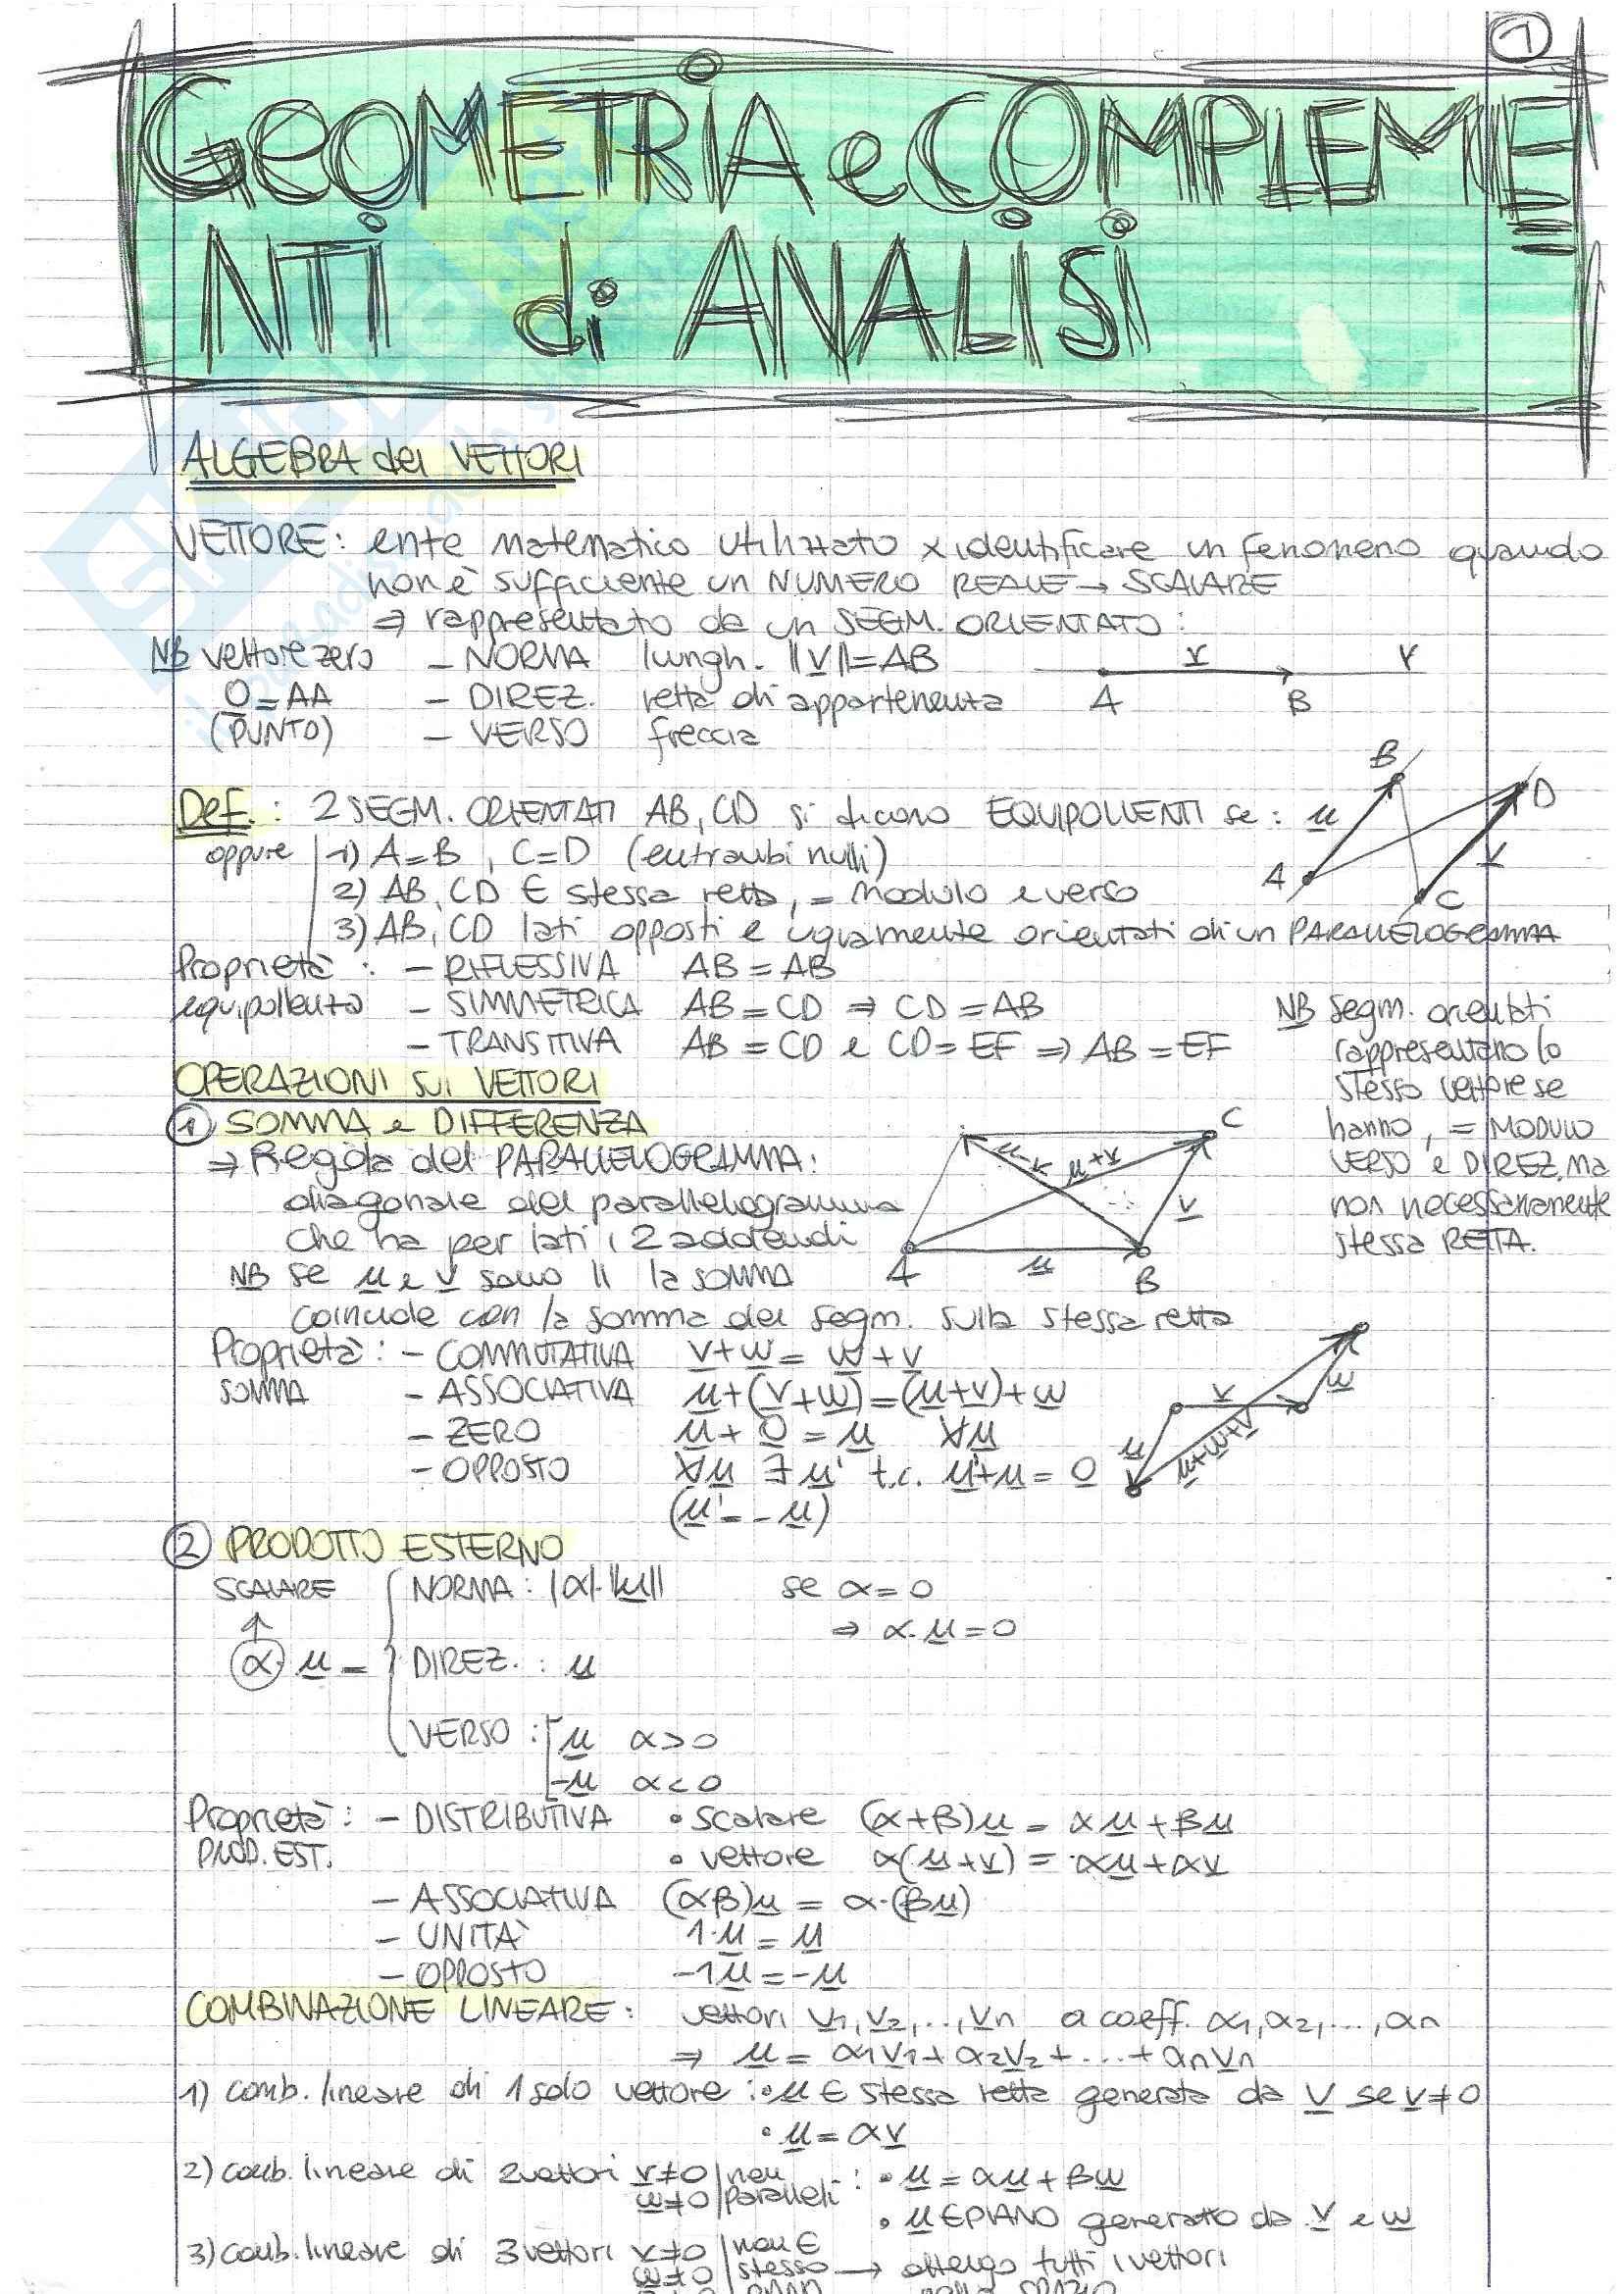 1
GEOMETRIA e COMPLEME
NTI di ANALISI
ALGEBRA dei VETTORI
VETTORE: ente matematico utilizzato x identificare un fenomeno quando
non è sufficiente un NUMERO REALE → SCALARE
⇒ rappresentato da un SEGM. ORIENTATO:
NB vettore zero – NORMA lungh. ||v||=AB
0=AA – DIREZ. retta di appartenenza
(PUNTO) – VERSO freccia
A v B r
Def.: 2 SEGM. ORIENTATI AB, CD si dicono EQUIPOLLENTI se:
oppure 1) A=B, C=D (entrambi nulli)
2) AB, CD ∈ stessa retta, = modulo e verso
3) AB, CD lati opposti e ugualmente orientati di un PARALLELOGRAMMA
B D
u v
A C
Proprietà: – RIFLESSIVA AB = AB
equipollenza – SIMMETRICA AB = CD ⇒ CD = AB
– TRANSITIVA AB = CD e CD = EF ⇒ AB = EF
NB segm. orientati
rappresentano lo
stesso vettore se
hanno, = MODULO
VERSO e DIREZ, ma
non necessariamente
stessa RETTA.
OPERAZIONI sui VETTORI
1 SOMMA e DIFFERENZA
⇒ Regola del PARALLELOGRAMMA:
diagonale del parallelogramma
che ha per lati i 2 addendi
NB se u e v sono // la somma
coincide con la somma dei segm. sulla stessa retta
C
u-v u+v
v
A u B
Proprietà: – COMMUTATIVA v+w = w+v
SOMMA – ASSOCIATIVA u+(v+w)=(u+v)+w
– ZERO u+0=u ∀u
– OPPOSTO ∀u ∃u' t.c. u'+u=0
(u'=-u)
v w
u u+w+v
2 PRODOTTO ESTERNO
SCALARE NORMA: |α|·||u|| se α=0
↑ ⇒ α·u=0
α·u = DIREZ.: u
VERSO: u α>0
-u α<0
Proprietà: – DISTRIBUTIVA • scalare (α+β)u = αu+βu
PROD. EST. • vettore α(u+v) = αu+αv
– ASSOCIATIVA (αβ)u = α·(βu)
– UNITÀ 1·u = u
– OPPOSTO -1u=-u
COMBINAZIONE LINEARE: vettori v1, v2, .., vn a coeff. α1, α2, ..., αn
⇒ u = α1v1+α2v2+...+αnvn
1) comb. lineare di 1 solo vettore: • u ∈ stessa retta generata da v se v≠0
• u = αv
2) comb. lineare di 2 vettori v≠0 non : • u = αu+βw
w≠0 paralleli
• u ∈ PIANO generato da v e w
3) comb. lineare di 3 vettori v≠0 non ∈
w≠0 stesso → ottengo tutti i vettori